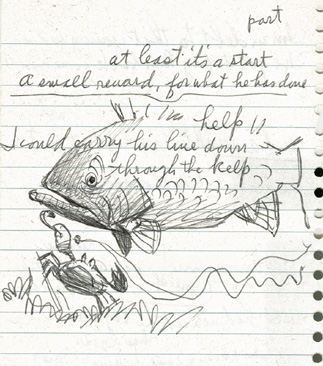 part
at least it's a start
a small reward, for what he has done
help !!
I could carry his line down
through the kelp